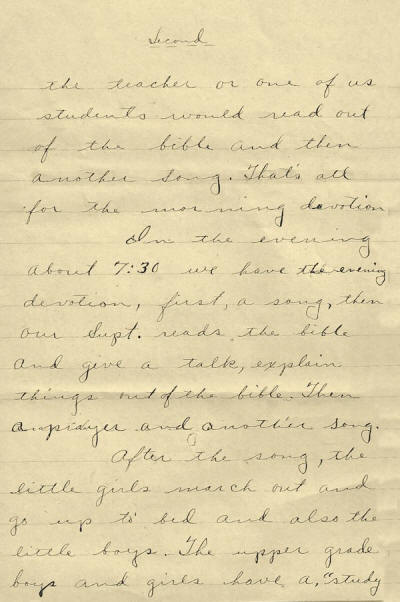 Second
the teacher or one of us
students would read out
of the bible and then
another song. That's all
for the morning devotion
In the evening
about 7:30 we have the evening
devotion, first, a song, then
our Supt. reads the bible
and give a talk, explain
things out of the bible. Then
a prayer and another song.
After the song, the
little girls march out and
go up to bed and also the
little boys. The upper grade
boys and girls have a "study